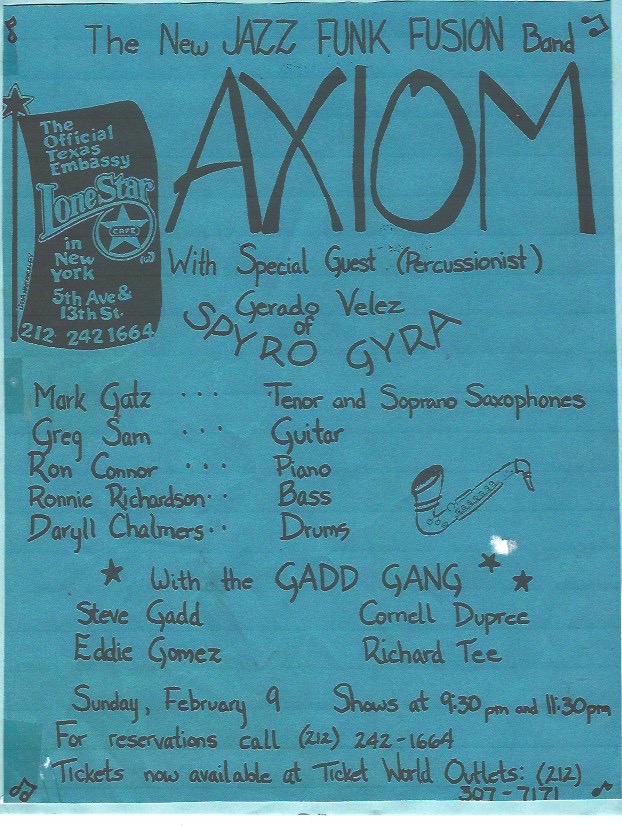 The New JAZZ FUNK FUSION Band
AXIOM
The
Official
Texas
Embassy
Lone Star
CAFE
in
New
York
5th Ave &
13th St.
212 242 1664
With Special Guest (Percussionist)
Gerado Velez
of
SPYRO GYRA
Mark Gatz ... Tenor and Soprano Saxophones
Greg Sam ... Guitar
Ron Connor ... Piano
Ronnie Richardson.. Bass
Daryll Chalmers.. Drums
With the GADD GANG
Steve Gadd Cornell Dupree
Eddie Gomez Richard Tee
Sunday, February 9 Shows at 9:30 pm and 11:30pm
For reservations call (212) 242-1664
Tickets now available at Ticket World Outlets: (212)
307-7171